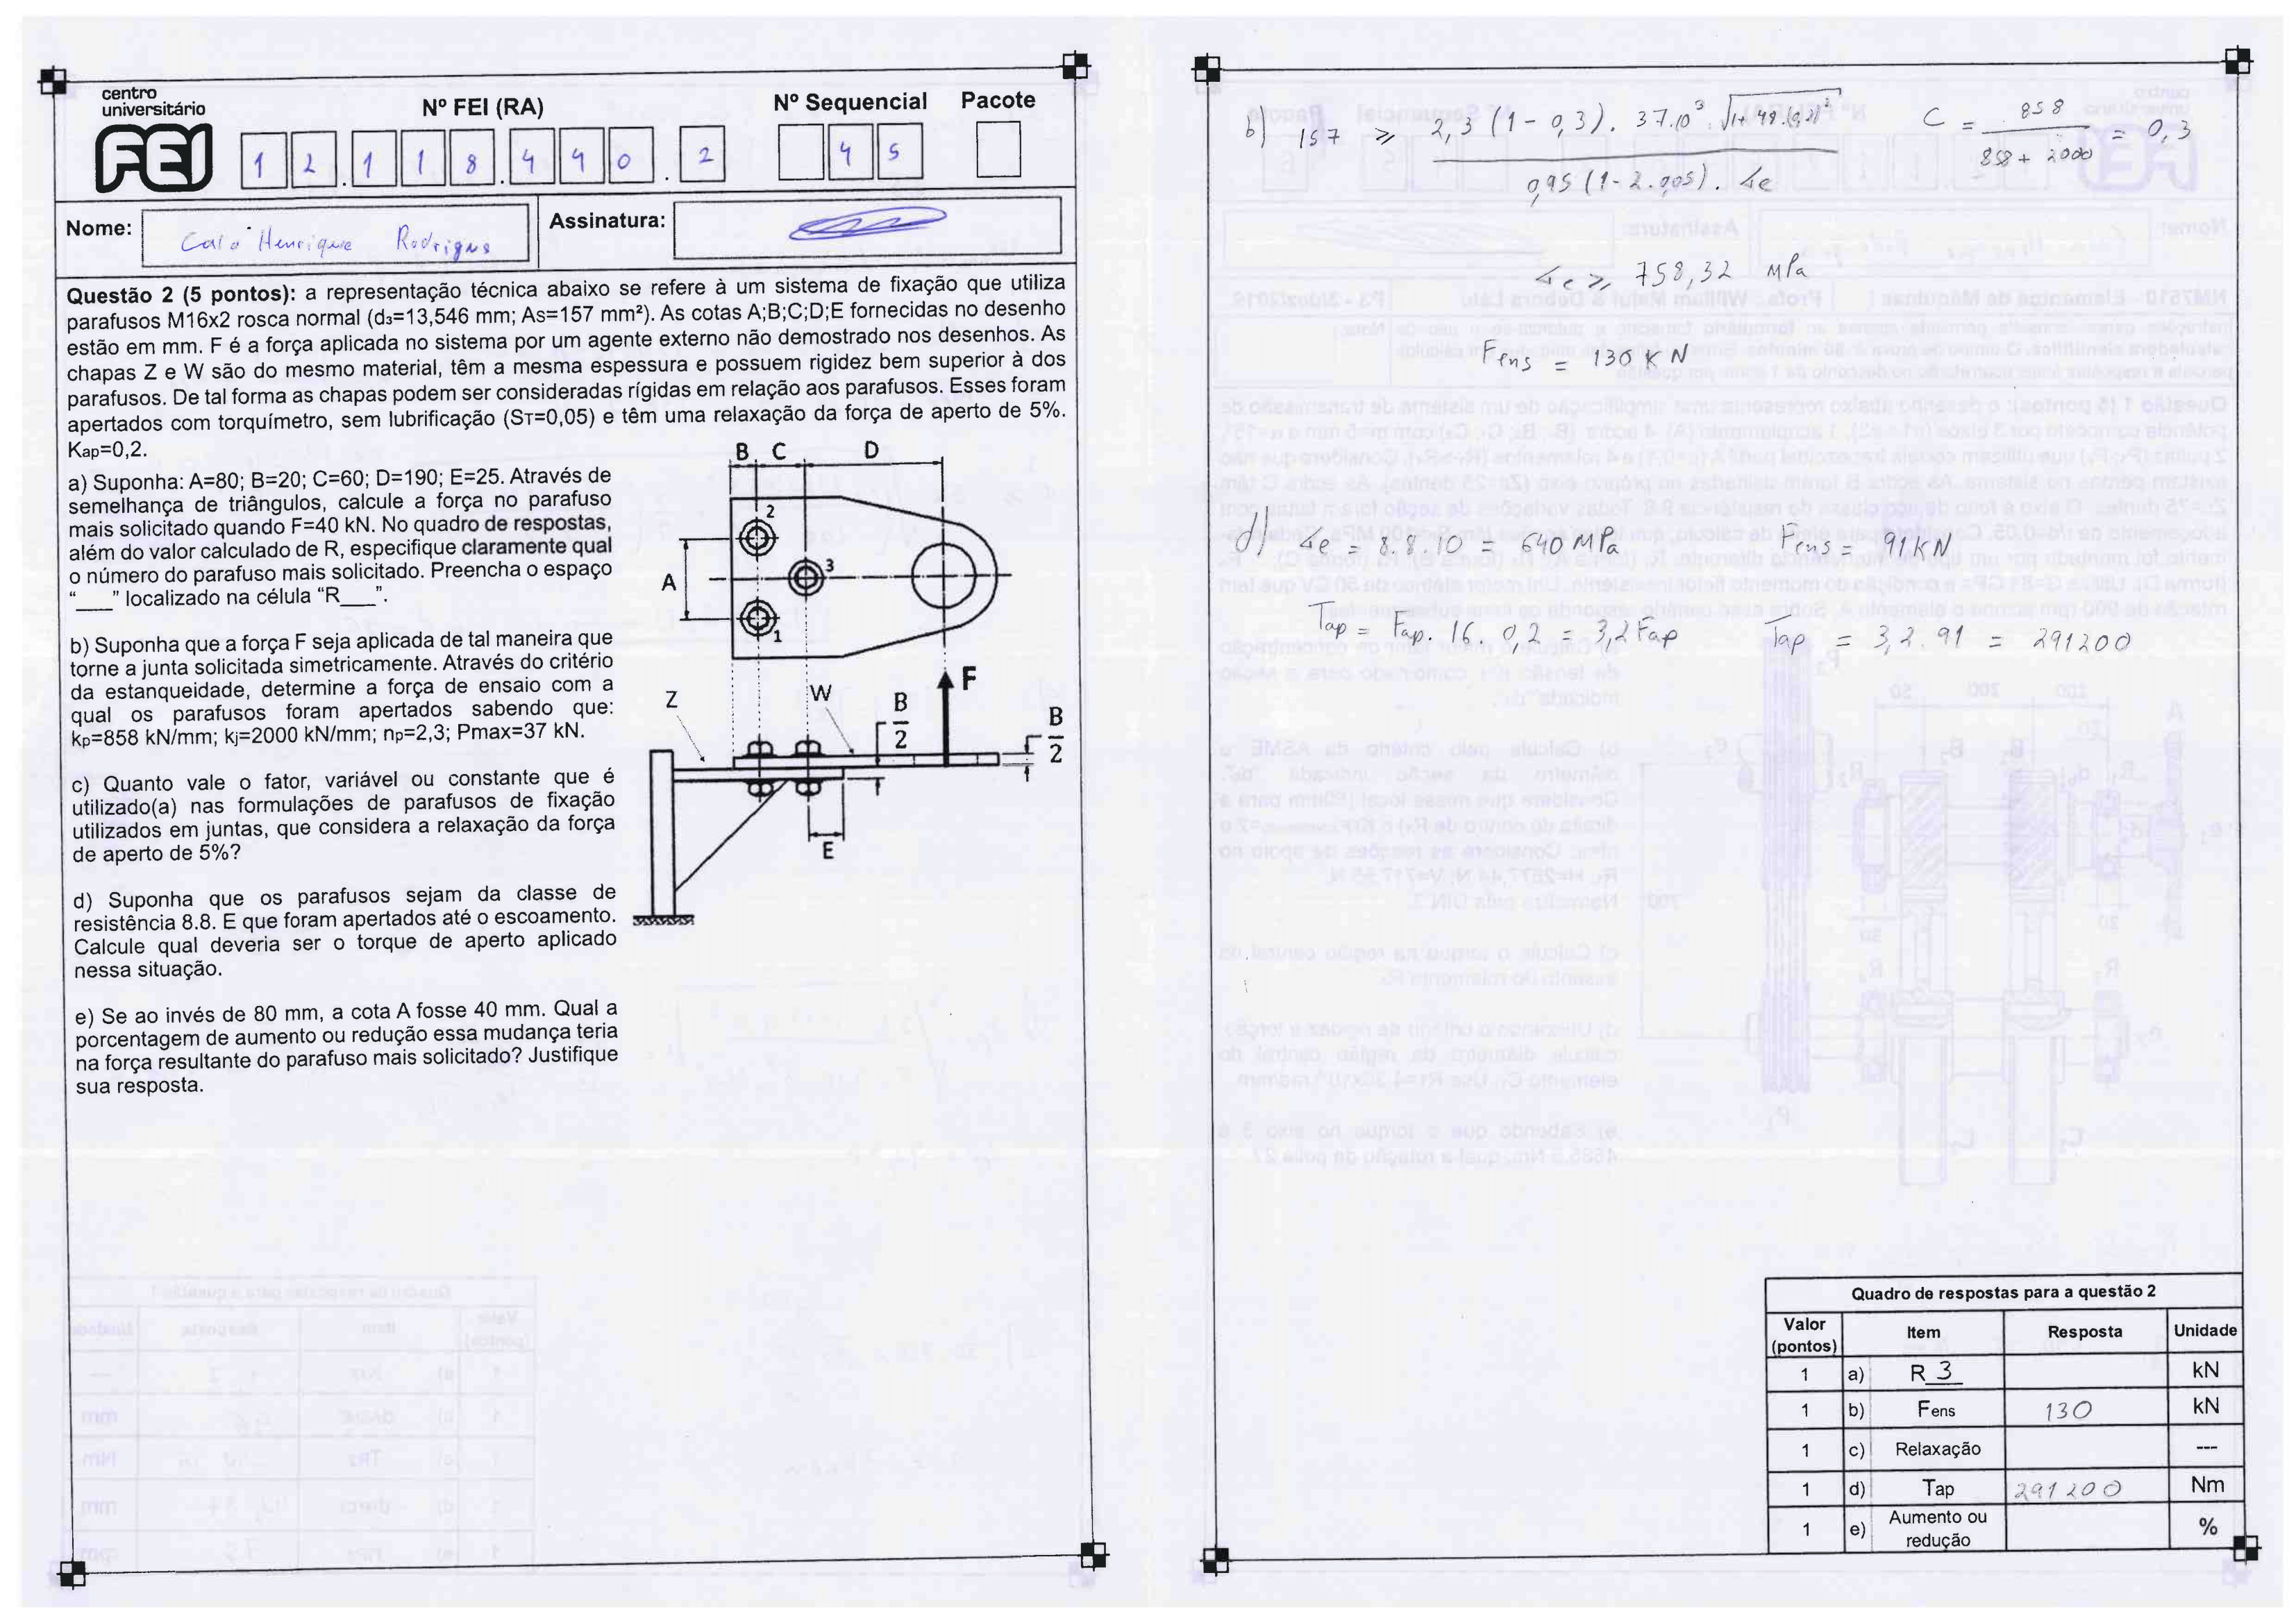 centro
universitário
FEI
Nº FEI (RA)
Nº Sequencial
Pacote
1 2 . 1 1 8 . 4 4 0 . 2
4 5
Nome:
Henrique Rodrigues
Assinatura:
Questão 2 (5 pontos): a representação técnica abaixo se refere à um sistema de fixação que utiliza
parafusos M16x2 rosca normal (d₃=13,546 mm; As=157 mm²). As cotas A;B;C;D;E fornecidas no desenho
estão em mm. F é a força aplicada no sistema por um agente externo não demostrado nos desenhos. As
chapas Z e W são do mesmo material, têm a mesma espessura e possuem rigidez bem superior à dos
parafusos. De tal forma as chapas podem ser consideradas rígidas em relação aos parafusos. Esses foram
apertados com torquímetro, sem lubrificação (Sᴛ=0,05) e têm uma relaxação da força de aperto de 5%.
Kap=0,2.
a) Suponha: A=80; B=20; C=60; D=190; E=25. Através de
semelhança de triângulos, calcule a força no parafuso
mais solicitado quando F=40 kN. No quadro de respostas,
além do valor calculado de R, especifique claramente qual
o número do parafuso mais solicitado. Preencha o espaço
“___” localizado na célula “R___”.
b) Suponha que a força F seja aplicada de tal maneira que
torne a junta solicitada simetricamente. Através do critério
da estanqueidade, determine a força de ensaio com a
qual os parafusos foram apertados sabendo que:
kp=858 kN/mm; kj=2000 kN/mm; np=2,3; Pmax=37 kN.
c) Quanto vale o fator, variável ou constante que é
utilizado(a) nas formulações de parafusos de fixação
utilizados em juntas, que considera a relaxação da força
de aperto de 5%?
d) Suponha que os parafusos sejam da classe de
resistência 8.8. E que foram apertados até o escoamento.
Calcule qual deveria ser o torque de aperto aplicado
nessa situação.
e) Se ao invés de 80 mm, a cota A fosse 40 mm. Qual a
porcentagem de aumento ou redução essa mudança teria
na força resultante do parafuso mais solicitado? Justifique
sua resposta.
B C D
2
3
A
1
F
Z
W
B/2
B/2
E
b) 157 ⩾ 2,3 (1 - 0,3) . 37.10³ . √1+48.(0,2)²
0,95 (1 - 2 . 0,05) . σe
C = 858 / 858 + 2000 = 0,3
σe ⩾ 758,32 MPa
Fens = 130 KN
d) σe = 8.8.10 = 640 MPa Fens = 91 KN
Tap = Fap . 16 . 0,2 = 3,2 Fap Tap = 3,2 . 91 = 291200
Quadro de respostas para a questão 2
Valor (pontos) Item Resposta Unidade
1 a) R 3 kN
1 b) Fens 130 kN
1 c) Relaxação ---
1 d) Tap 291200 Nm
1 e) Aumento ou redução %